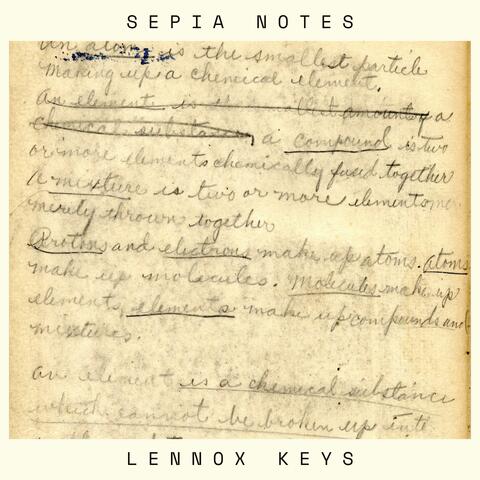 SEPIA NOTES
an atom is the smallest particle
making up a chemical element.
An element is the that amounts of a
chemical substance, a compound is two
or more elements chemically fused together
A mixture is two or more elements
merely thrown together
Protons and electrons make up atoms. Atoms
make up molecules. Molecules make up
elements, elements make up compounds and
mixtures.
an element is a chemical substance
which cannot be broken up into
LENNOX KEYS